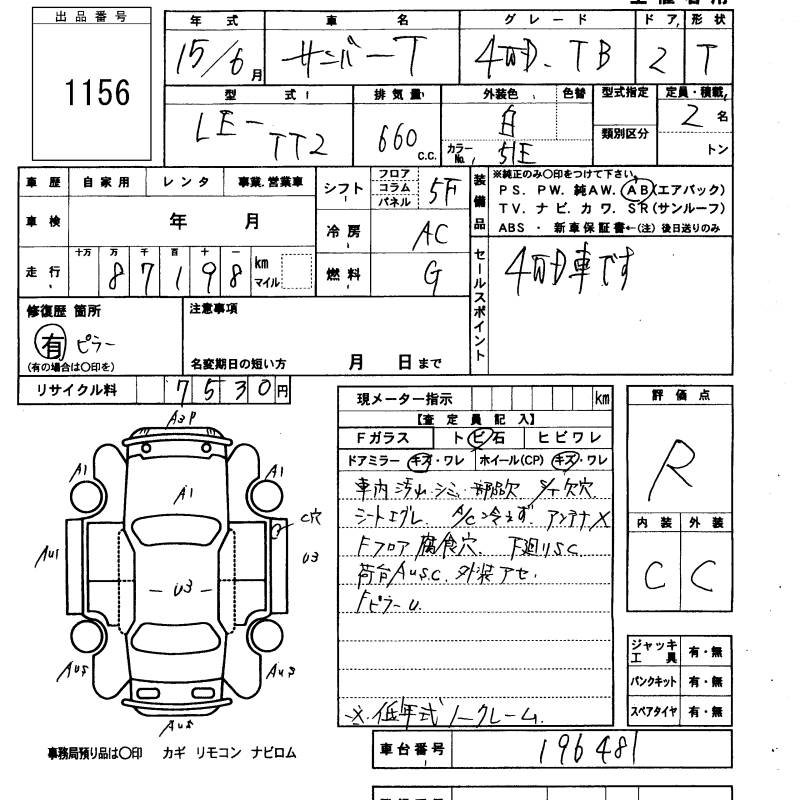 出品番号
1156
年式 車名 グレード ドア 形状
15/6月 サンバーT 4WD-TB 2 T
型式 排気量 外装色 色替 型式指定 定員・積載
LE-TT2 660 C.C. 白 類別区分 2名
カラーNo. 51E トン
車歴 自家用 レンタ 事業.営業車
車検 年 月
走行 十万 万 千 百 十 一
87198 km マイル
シフト フロア コラム パネル 5F
冷房 AC
燃料 G
装備品
※純正のみ○印をつけて下さい。
PS. PW. 純AW. AB(エアバック)
TV. ナビ. カワ. SR(サンルーフ)
ABS ・ 新車保証書←(注) 後日送りのみ
セールスポイント
4WD車です
修復歴 箇所
有 ピラー
(有の場合は○印を)
注意事項
名変期日の短い方 月 日まで
リサイクル料 7530円
現メーター指示 km
【査定員記入】
Fガラス トビ石 ヒビワレ
ドアミラー キズ・ワレ ホイール(CP) キズ・ワレ
車内汚れ.シミ.部品欠 S/T欠穴
シートエグレ A/C冷えず アンテナX
Fフロア腐食穴. 下廻りS.C
荷台AUSC. 外装アセ.
FピラーU.
※.低年式ノークレーム.
評価点
R
内装 外装
C C
ジャッキ工具 有・無
パンクキット 有・無
スペアタイヤ 有・無
A3P
A1 A1
A1
C穴
AU1 U3
U3
AUS AU3
AUS
事務局預り品は○印 カギ リモコン ナビロム
車台番号 196481